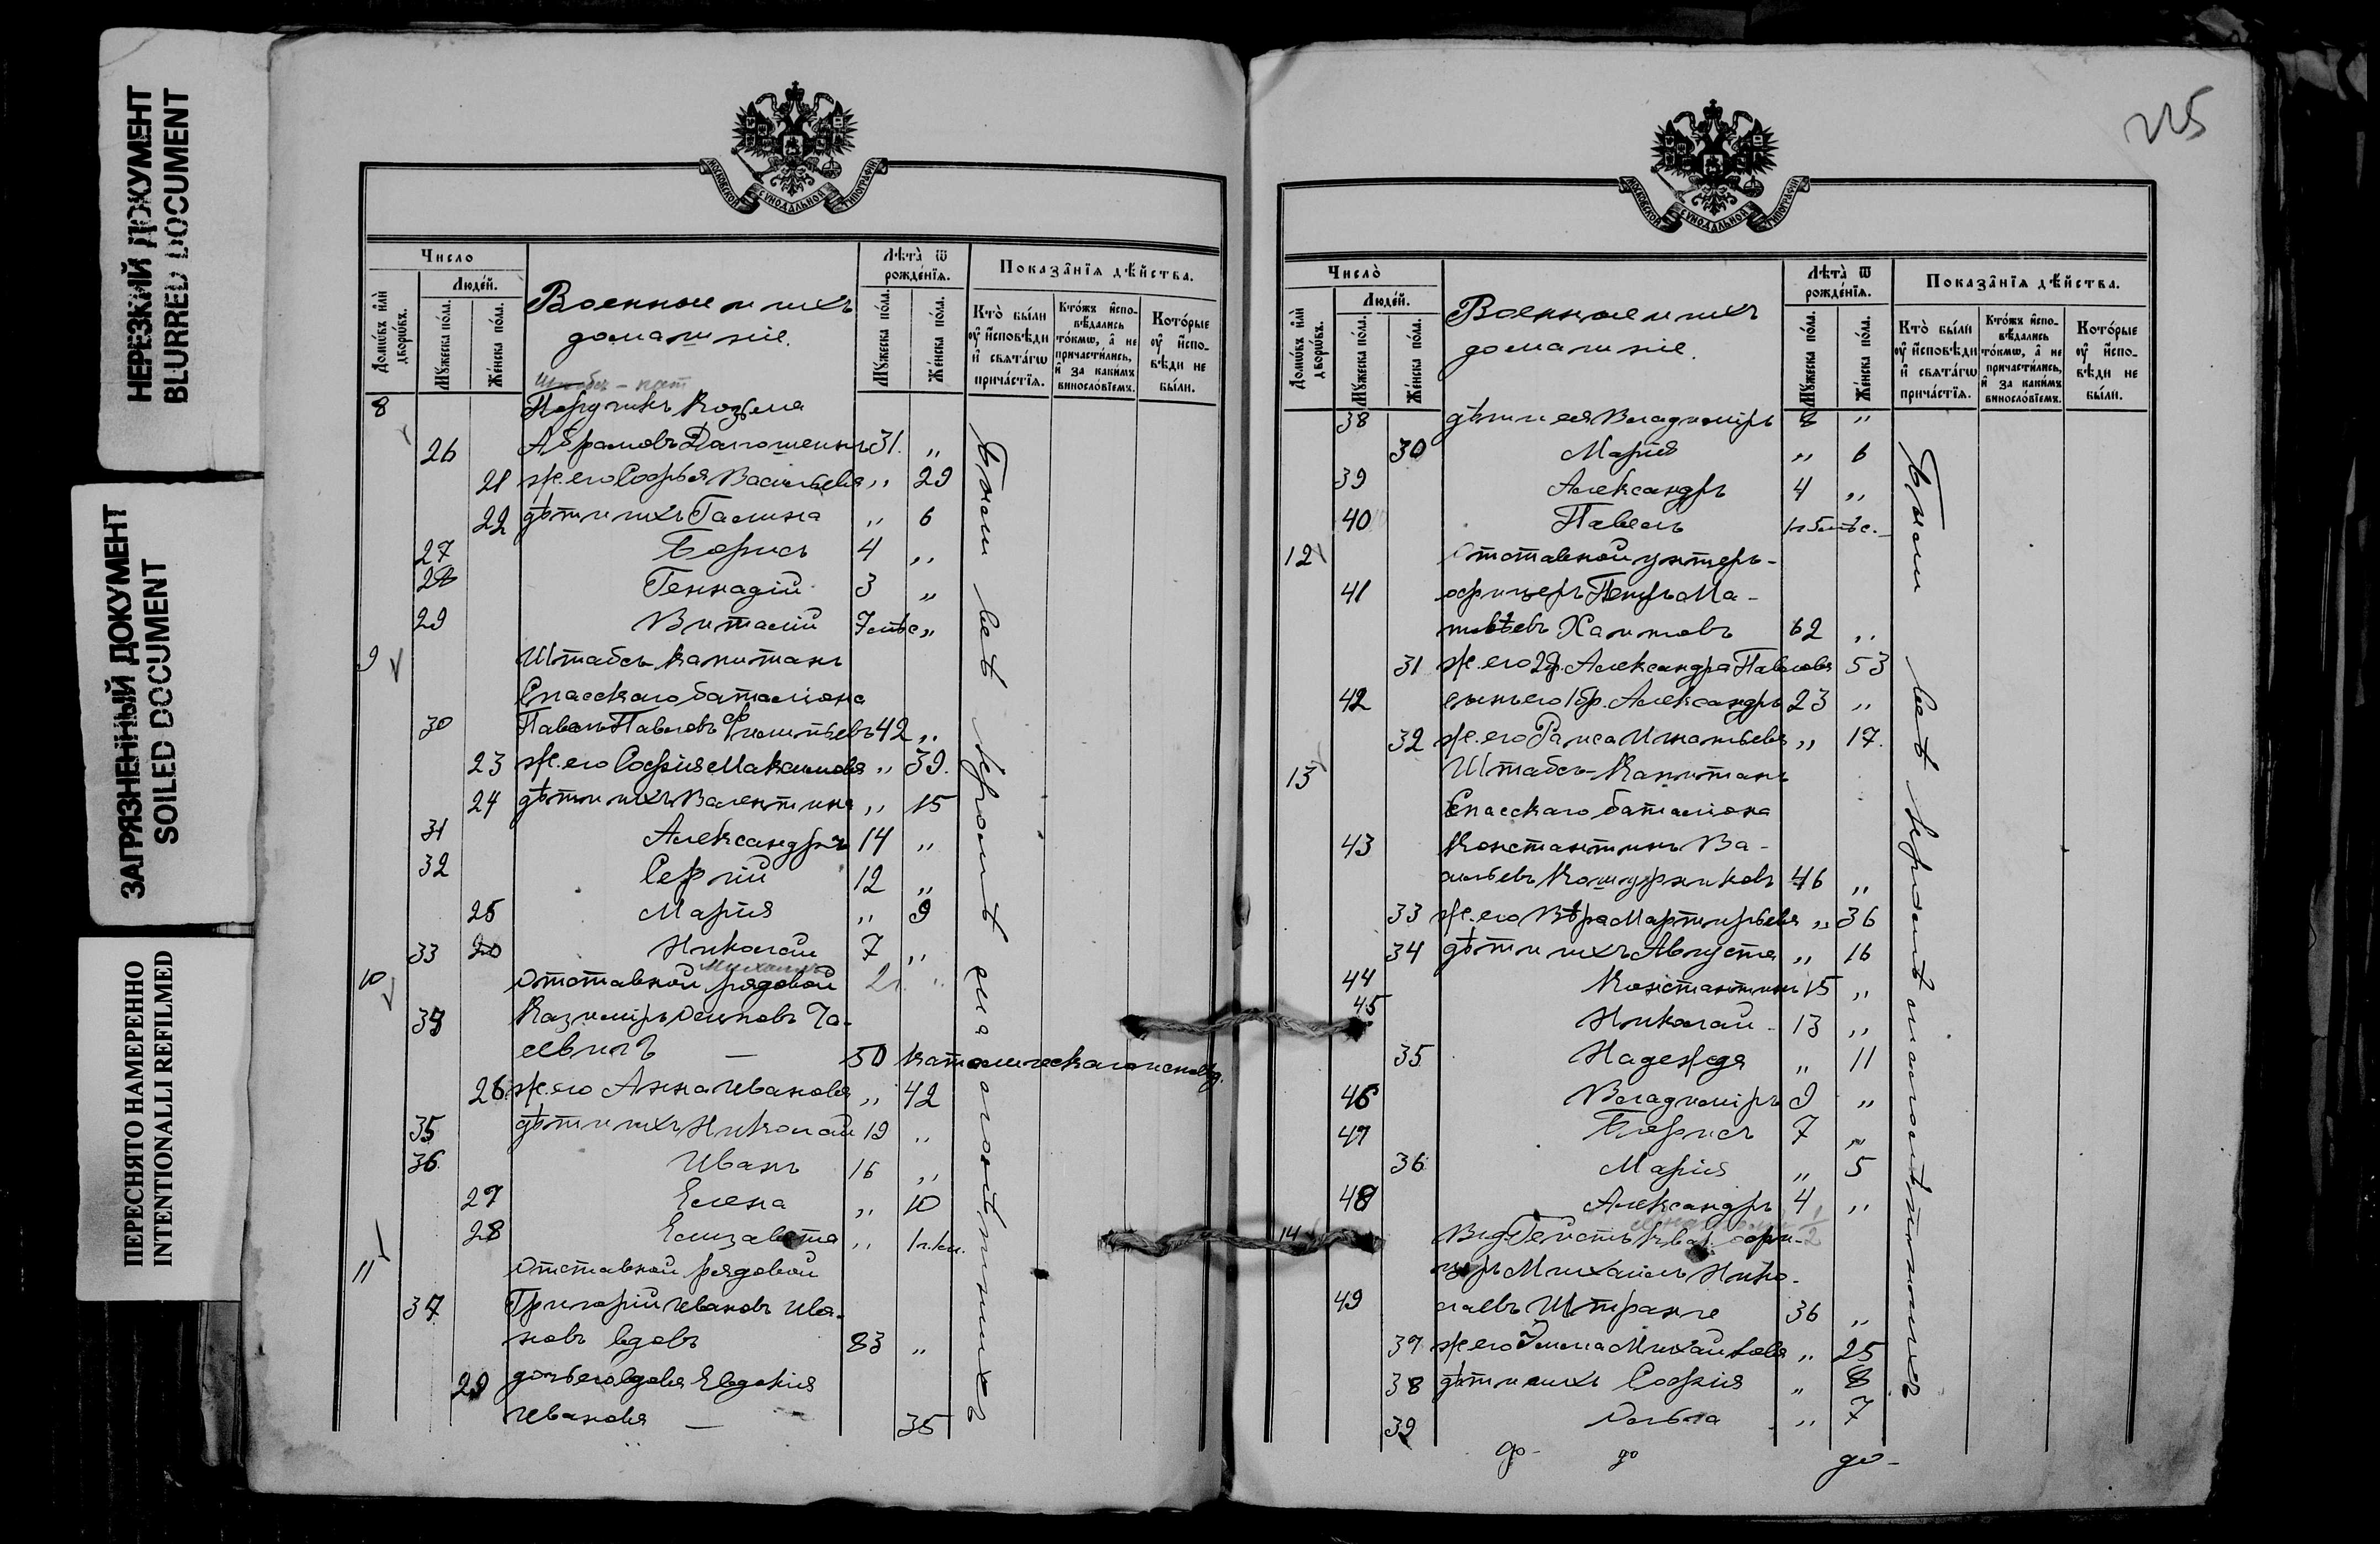 НЕРЕЗКИЙ ДОКУМЕНТ
BLURRED DOCUMENT
ЗАГРЯЗНЕННЫЙ ДОКУМЕНТ
SOILED DOCUMENT
ПЕРЕСНЯТО НАМЕРЕННО
INTENTIONALLI REFILMED
МОСКОВСКОЙ СУНОДАЛЬНОЙ ТИПОГРАФІИ
Число
Людей.
Домѡвъ или дворѡвъ.
Мꙋжеска пола.
Женска пола.
Военные и ихъ
домашніе.
Лѣта ѿ рожденія.
Мꙋжеска пола.
Женска пола.
Показанія дѣйства.
Кто были оу исповѣди и свѧтагѡ причастія.
Ктожъ исповѣдались токмѡ, а не причастились, и за какимъ винословіемъ.
Которые оу исповѣди не были.
Штабсъ-кап
8 Поручикъ Козьма
26 Абрамовъ 31. „
21 ж. его Софья Васильева „ 29
22 дѣти ихъ Галина „ 6
27 Борисъ 4 „
28 Геннадій 3 „
29 Виталій 7 мѣс „
9 Штабсъ-капитанъ
Спасскаго баталіона
30 Павелъ Павловъ 42 „
23 ж. его Софія Максимова „ 39.
24 дѣти ихъ Валентина „ 15
31 Александръ 14 „
32 Сергій 12 „
25 Марія „ 9
33 20 Николай 7 „
Михаилъ 2
10 Отставной рядовой
34 Казиміръ Осиповъ
50 католическаго исповѣд.
26 ж. его Анна Иванова „ 42
35 дѣти ихъ Николай 19 „
36 Иванъ 16 „
27 Елена „ 10
28 Елизавета „
11 Отставной рядовой
37 Григорій Ивановъ Ива-
новъ вдовъ 83 „
29 дочь его вдова Евдокія
Иванова — 35
Были всѣ кромѣ малолѣтнихъ
225
МОСКОВСКОЙ СУНОДАЛЬНОЙ ТИПОГРАФІИ
Число
Людей.
Домѡвъ или дворѡвъ.
Мꙋжеска пола.
Женска пола.
Военные и ихъ
домашніе.
Лѣта ѿ рожденія.
Мꙋжеска пола.
Женска пола.
Показанія дѣйства.
Кто были оу исповѣди и свѧтагѡ причастія.
Ктожъ исповѣдались токмѡ, а не причастились, и за какимъ винословіемъ.
Которые оу исповѣди не были.
38 дѣти ея Владиміръ 8 „
30 Марія „ 6
39 Александръ 4 „
40 Павелъ
12 Отставной унтеръ-
41 офицеръ Петръ Ма-
твѣевъ 62 „
31 ж. его 2 бр. Александра Павлова 53
42 сынъ его 1 бр. Александръ 23 „
32 ж. его Раиса Игнатьева „ 17.
13 Штабсъ-Капитанъ
Спасскаго баталіона
43 Константинъ Ва-
сильевъ 46 „
33 ж. его Вѣра Мартирьева „ 36
34 дѣти ихъ Августа „ 16
44 Константинъ 15 „
45 Николай 13 „
35 Надежда „ 11
46 Владиміръ 9 „
47 Борисъ 7 „
36 Марія „ 5
48 Александръ 4 „
14
офи-
церъ Михаилъ Нико-
49 лаевъ Штранге 36 „
37 ж. его Эмма Михайлова „ 25
38 дѣти ихъ Софія „ 8
39 Ольга „ 7
до- до до-
Были всѣ кромѣ малолѣтнихъ